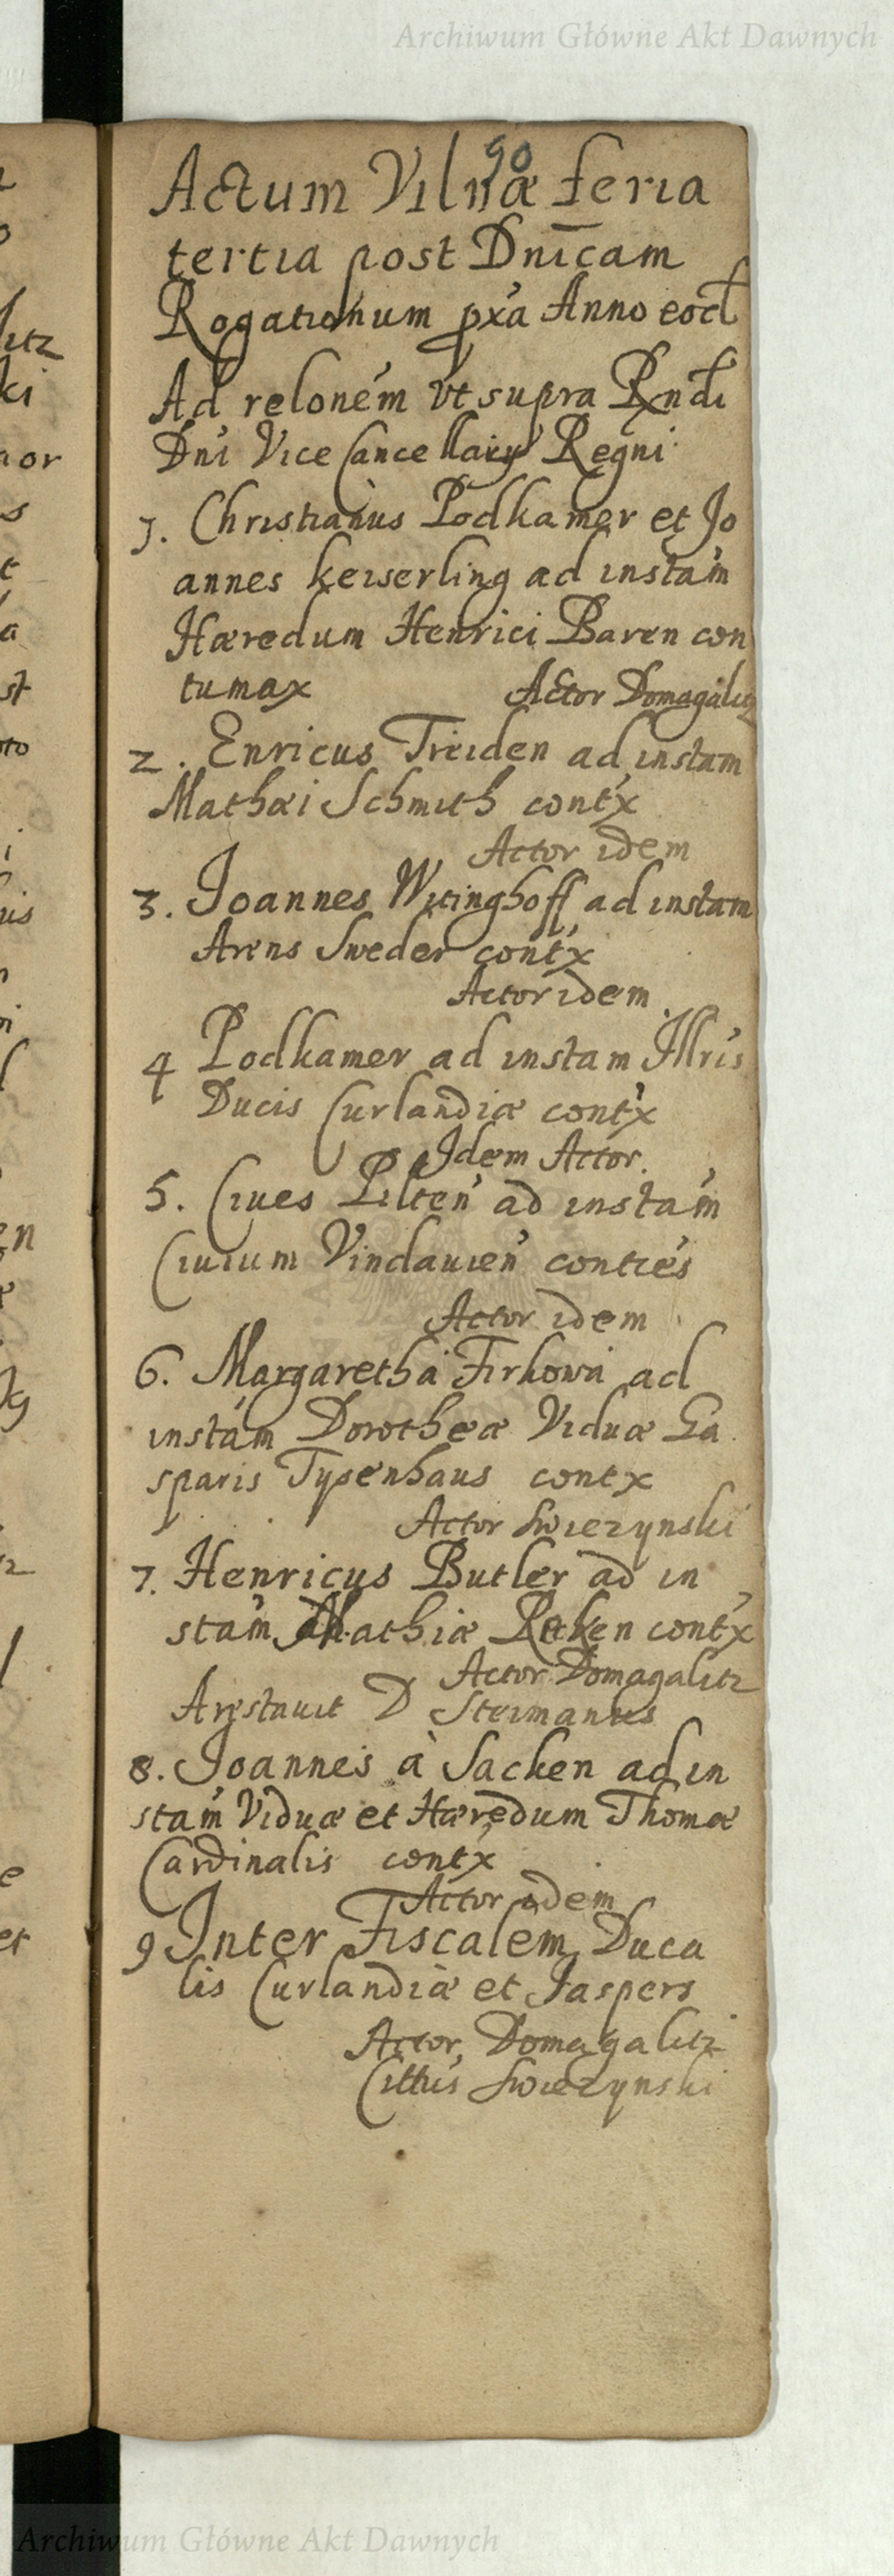 Archiwum Główne Akt Dawnych
90
Actum Vilnæ feria
tertia post Dnicam
Rogationum pxa Anno eod
Ad relonem ut supra Rndi
Dni Vice Cancellarij Regni
1. Christianus Podkamer et Jo
annes keiserling ad instam
Hæredum Henrici Baren con
tumax
Actor Domagalitz
2. Enricus Treiden ad instam
Mathæi Schmith contx
Actor idem
3. Joannes Witinghoff ad instam
Arens Sweder contx
Actor idem
4 Podkamer ad instam Illris
Ducis Curlandiæ contx
Idem Actor.
5. Ciues Pilten ad instam
Ciuium Vindauien conties
Actor idem
6. Margaretha Firkowa ad
instam Dorotheæ Viduæ Ga
sparis Tysenhaus contx
Actor Swiezynski
7. Henricus Butler ad in
stam Mathiæ Reken contx
Actor Domagalitz
Arestauit D Steimanus
8. Joannes à Sacken ad in
stam Viduæ et Hæredum Thomæ
Cardinalis contx
Actor idem
9 Inter Fiscalem Duca
lis Curlandiæ et Jaspers
Actor Domagalitz
Cittus Swiezynski
Archiwum Główne Akt Dawnych